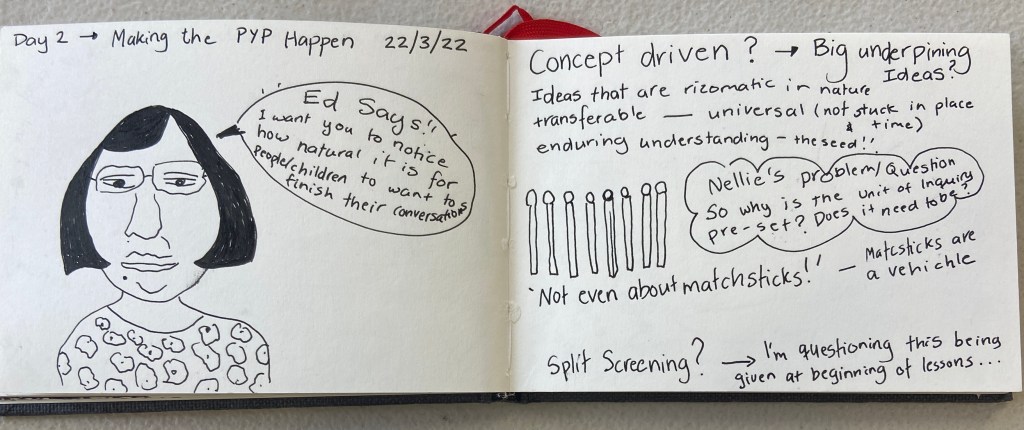 Day 2 → Making the PYP Happen 22/3/22
Ed Says!!
I want you to notice
how natural it is for
people/children to want to
finish their conversations
Concept driven? → Big underpining
Ideas?
Ideas that are rizomatic in nature
transferable — universal (not stuck in place
& time)
enduring understanding - the seed!!
Nellie's problem/Question
So why is the unit of Inquiry
pre-set? Does it need to be?
'Not even about matchsticks!' — Matcsticks are
a vehichle
Split Screening? → I'm questioning this being
given at beginning of lessons...